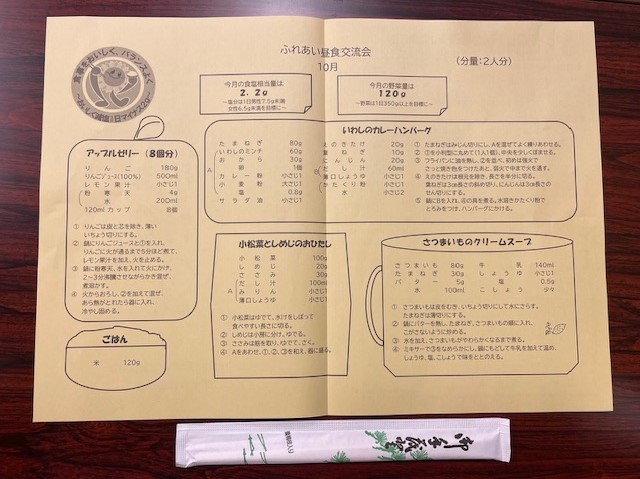 ふれあい昼食交流会
10月
(分量:2人分)
食事をおいしく、バランスよく
おいしく減塩1日マイナス2g
今月の食塩相当量は
2.2g
~塩分は1日男性7.5g未満
女性6.5g未満を目標に~
今月の野菜量は
120g
~野菜は1日350g以上を目標に~
アップルゼリー (8個分)
りんご 180g
りんごジュース(100%) 500ml
レモン果汁 小さじ1
粉寒天 4g
水 200ml
120mlカップ 8個
① りんごは皮と芯を除き、薄い
いちょう切りにする。
② 鍋にりんごジュースと①を入れ、
りんごに火が通るまで5分ほど煮て、
レモン果汁を加え、火を止める。
③ 鍋に粉寒天、水を入れて火にかけ、
2~3分沸騰させながらかき混ぜ、
煮溶かす。
④ 火からおろし、②を加えて混ぜ、
あら熱がとれたら器に入れ、
冷やし固める。
ごはん
米 120g
いわしのカレーハンバーグ
たまねぎ 80g
いわしのミンチ 60g
おから 30g
卵 1個
A
カレー粉 小さじ1
小麦粉 大さじ1
塩 0.8g
サラダ油 小さじ1
えのきたけ 20g
葉ねぎ 10g
にんじん 20g
だし汁 60ml
B
薄口しょうゆ 小さじ1
かたくり粉 小さじ1
水 小さじ2
① たまねぎはみじん切りにし、Aを混ぜてよく練りあわせる。
② ①を小判型に丸めて(1人1個)、中央を少しくぼませる。
③ フライパンに油を熱し、②を並べ、初めは強火で
さっと焼き色をつけたあと、弱火で中まで火を通す。
④ えのきたけは根元を除き、長さを半分に切る。
葉ねぎは3cm長さの斜め切り、にんじんは3cm長さの
せん切りにする。
⑤ 鍋にBを入れ、④の具を煮る。水溶きかたくり粉で
とろみをつけ、ハンバーグにかける。
小松菜としめじのおひたし
小松菜 100g
しめじ 20g
ささみ 30g
だし汁 100ml
A
みりん 小さじ1
薄口しょうゆ 小さじ1
① 小松菜はゆでて、水けをしぼって
食べやすい長さに切る。
② しめじは小房に分け、ゆでる。
③ ささみは筋を取り、ゆでて、さく。
④ Aをあわせ、①、②、③を和え、器に盛る。
さつまいものクリームスープ
さつまいも 80g
たまねぎ 30g
バター 5g
水 100ml
牛乳 140ml
しょうゆ 小さじ1
塩 0.5g
こしょう 少々
① さつまいもは皮をむき、いちょう切りにして水にさらす。
たまねぎは薄切りにする。
② 鍋にバターを熱し、たまねぎ、さつまいもの順に入れ、
こがさないように炒める。
③ 水を加え、さつまいもがやわらかくなるまで煮る。
④ ミキサーで③をなめらかにし、鍋にもどして牛乳を加えて温め、
しょうゆ、塩、こしょうで味をととのえる。
御手茂登
楊枝入り